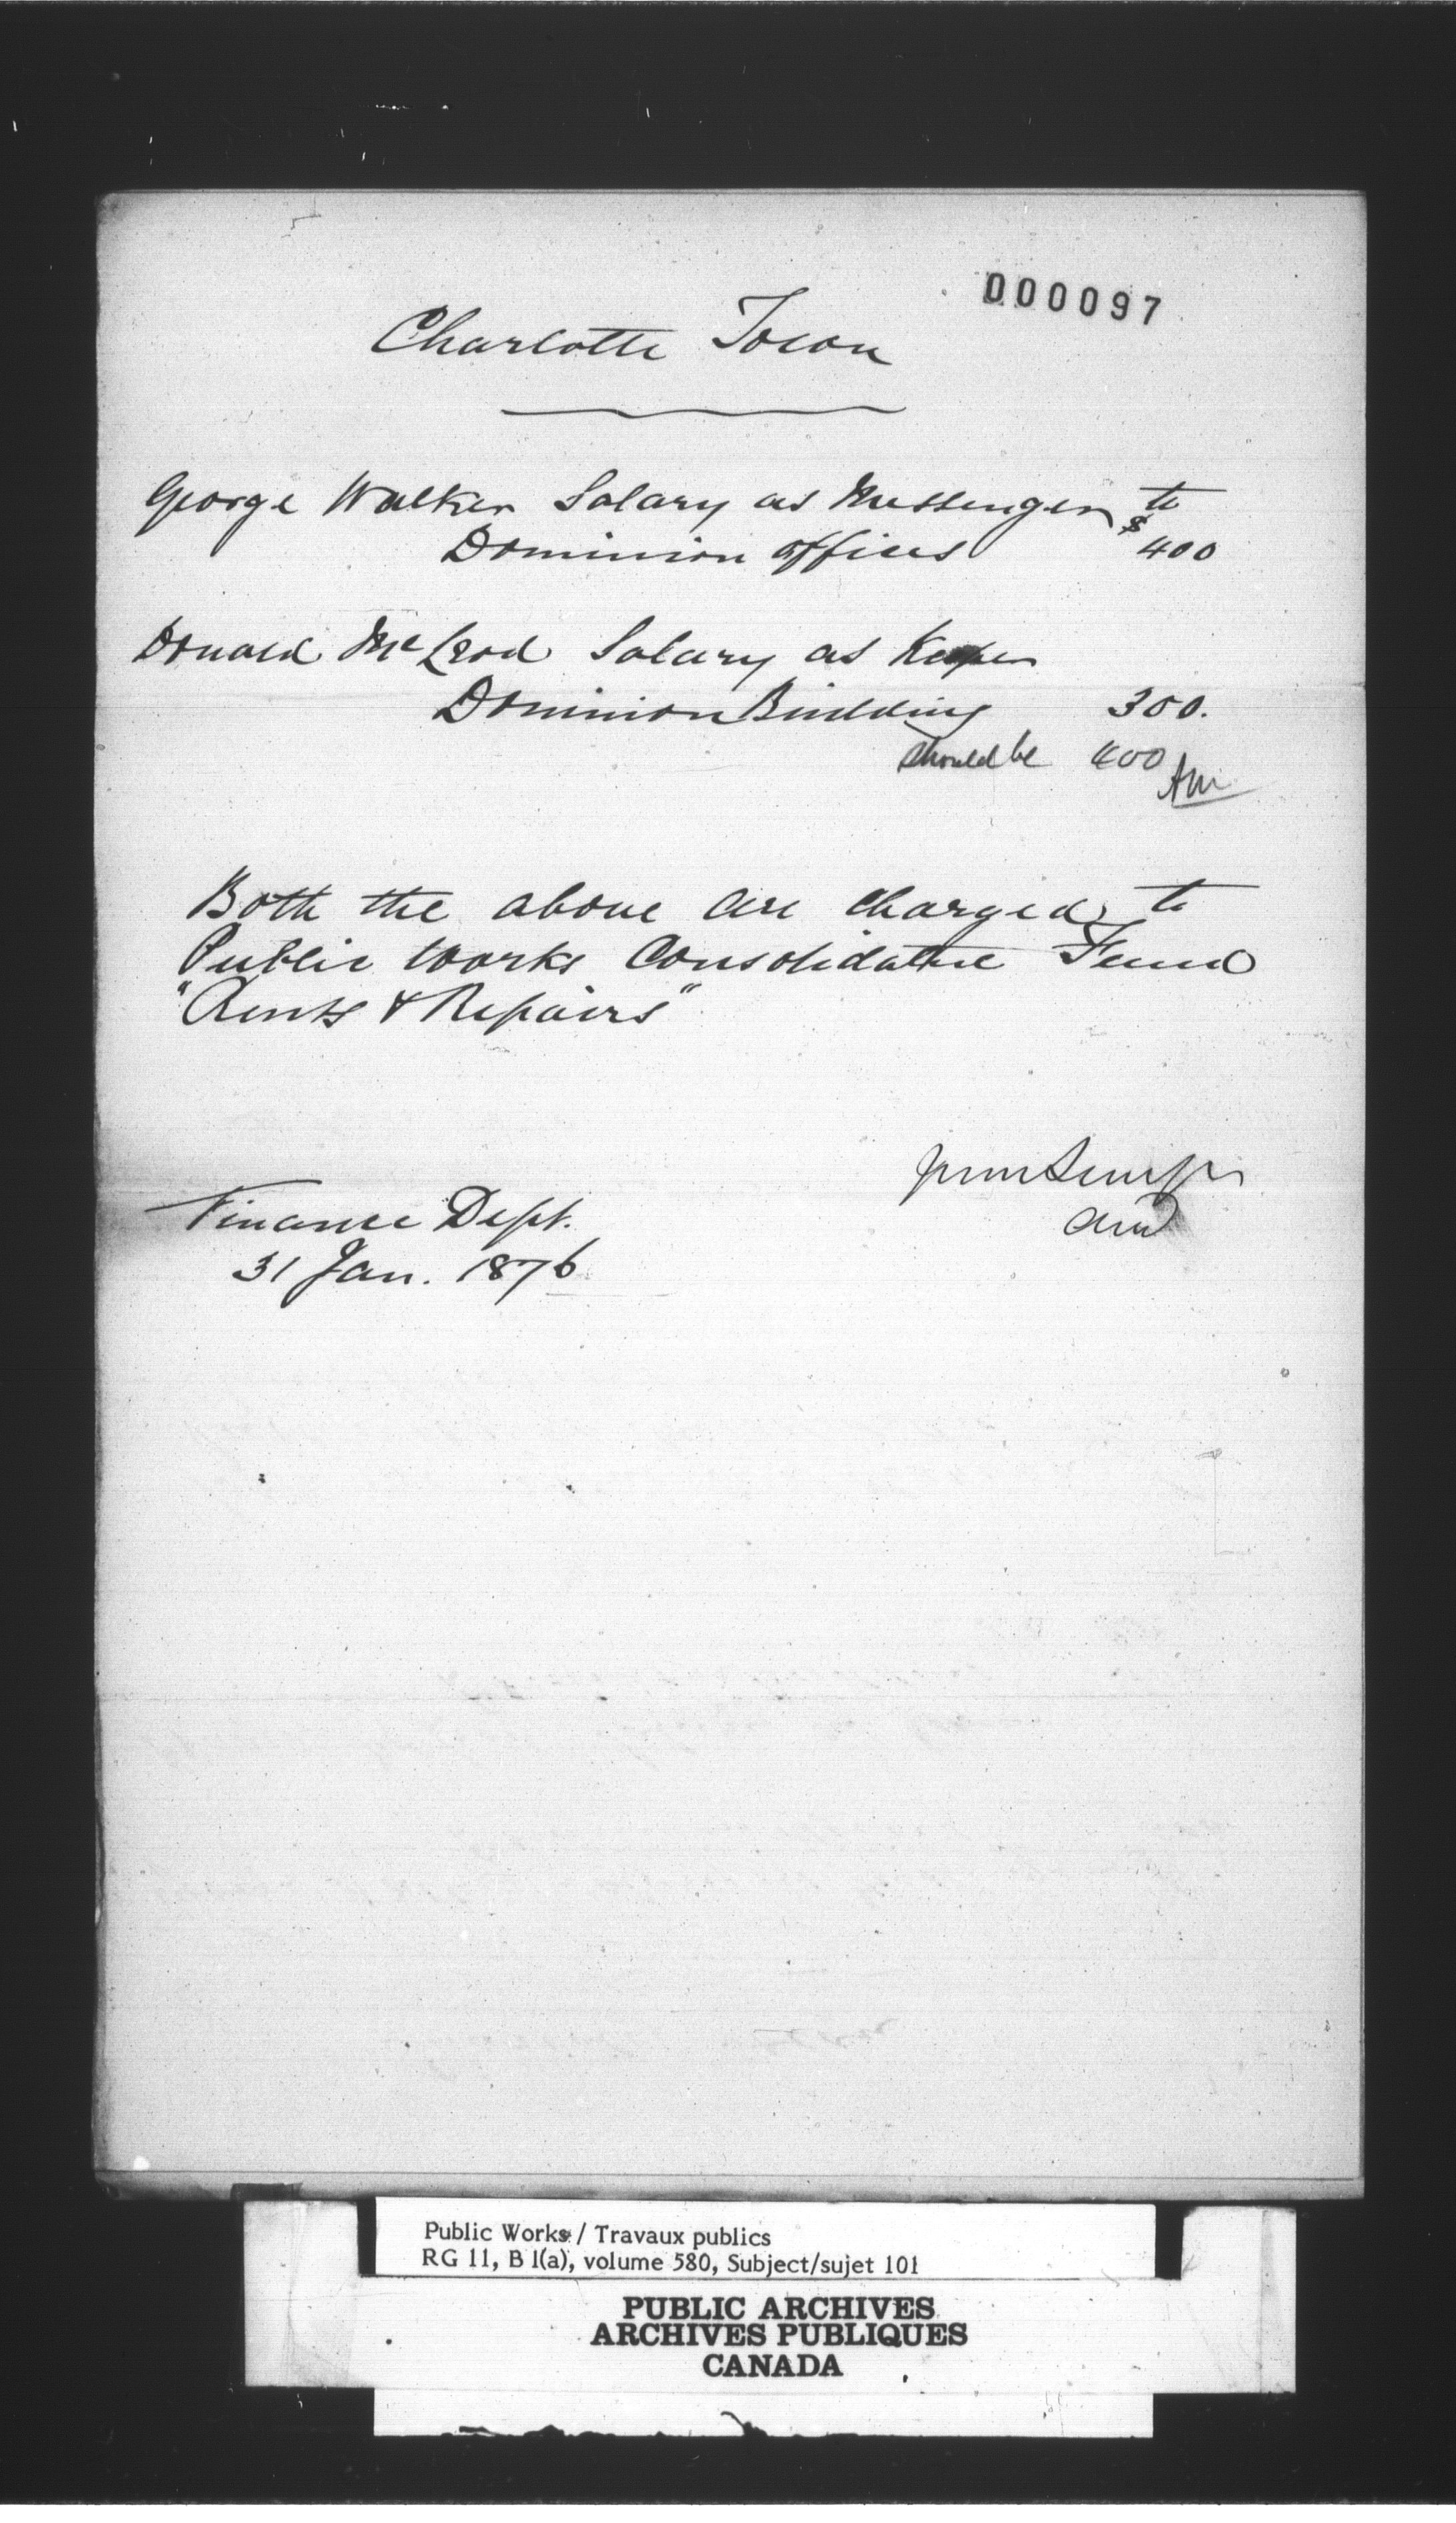 000097
Charlotte Town
George Walker Salary as Messenger to
Dominion offices $400
Donald McLeod Salary as Keeper
Dominion Building 300.
should be 400
Both the above are charged to
Public Works Consolidated Fund
"Rents & Repairs"
Finance Dept.
31 Jan. 1876
Public Works / Travaux publics
RG 11, B 1(a), volume 580, Subject/sujet 101
PUBLIC ARCHIVES
ARCHIVES PUBLIQUES
CANADA